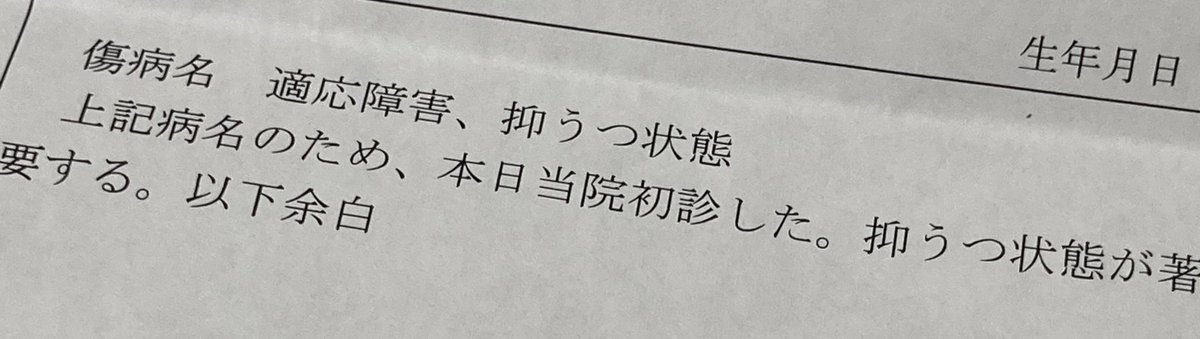 生年月日
傷病名　適応障害、抑うつ状態
上記病名のため、本日当院初診した。抑うつ状態が著
要する。以下余白